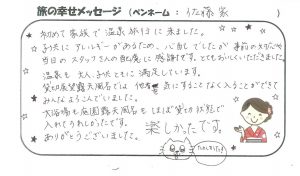 旅の幸せメッセージ（ペンネーム：佐藤家）
初めて家族で温泉旅行に来ました。
アレルギーがあるため、心配でしたが 事前の
当日のスタッフさんの配慮に感謝です。とてもおいしくいただきました。
温泉も 大人、みな ともに 満足しています。
貸切展望露天風呂では 気にすることなく入ることができて
みんなよろこんでいました。
大浴場も庭園露天風呂も ほぼ貸切状態で
入れてうれしかったです。
ありがとうございました。
楽しかったです。